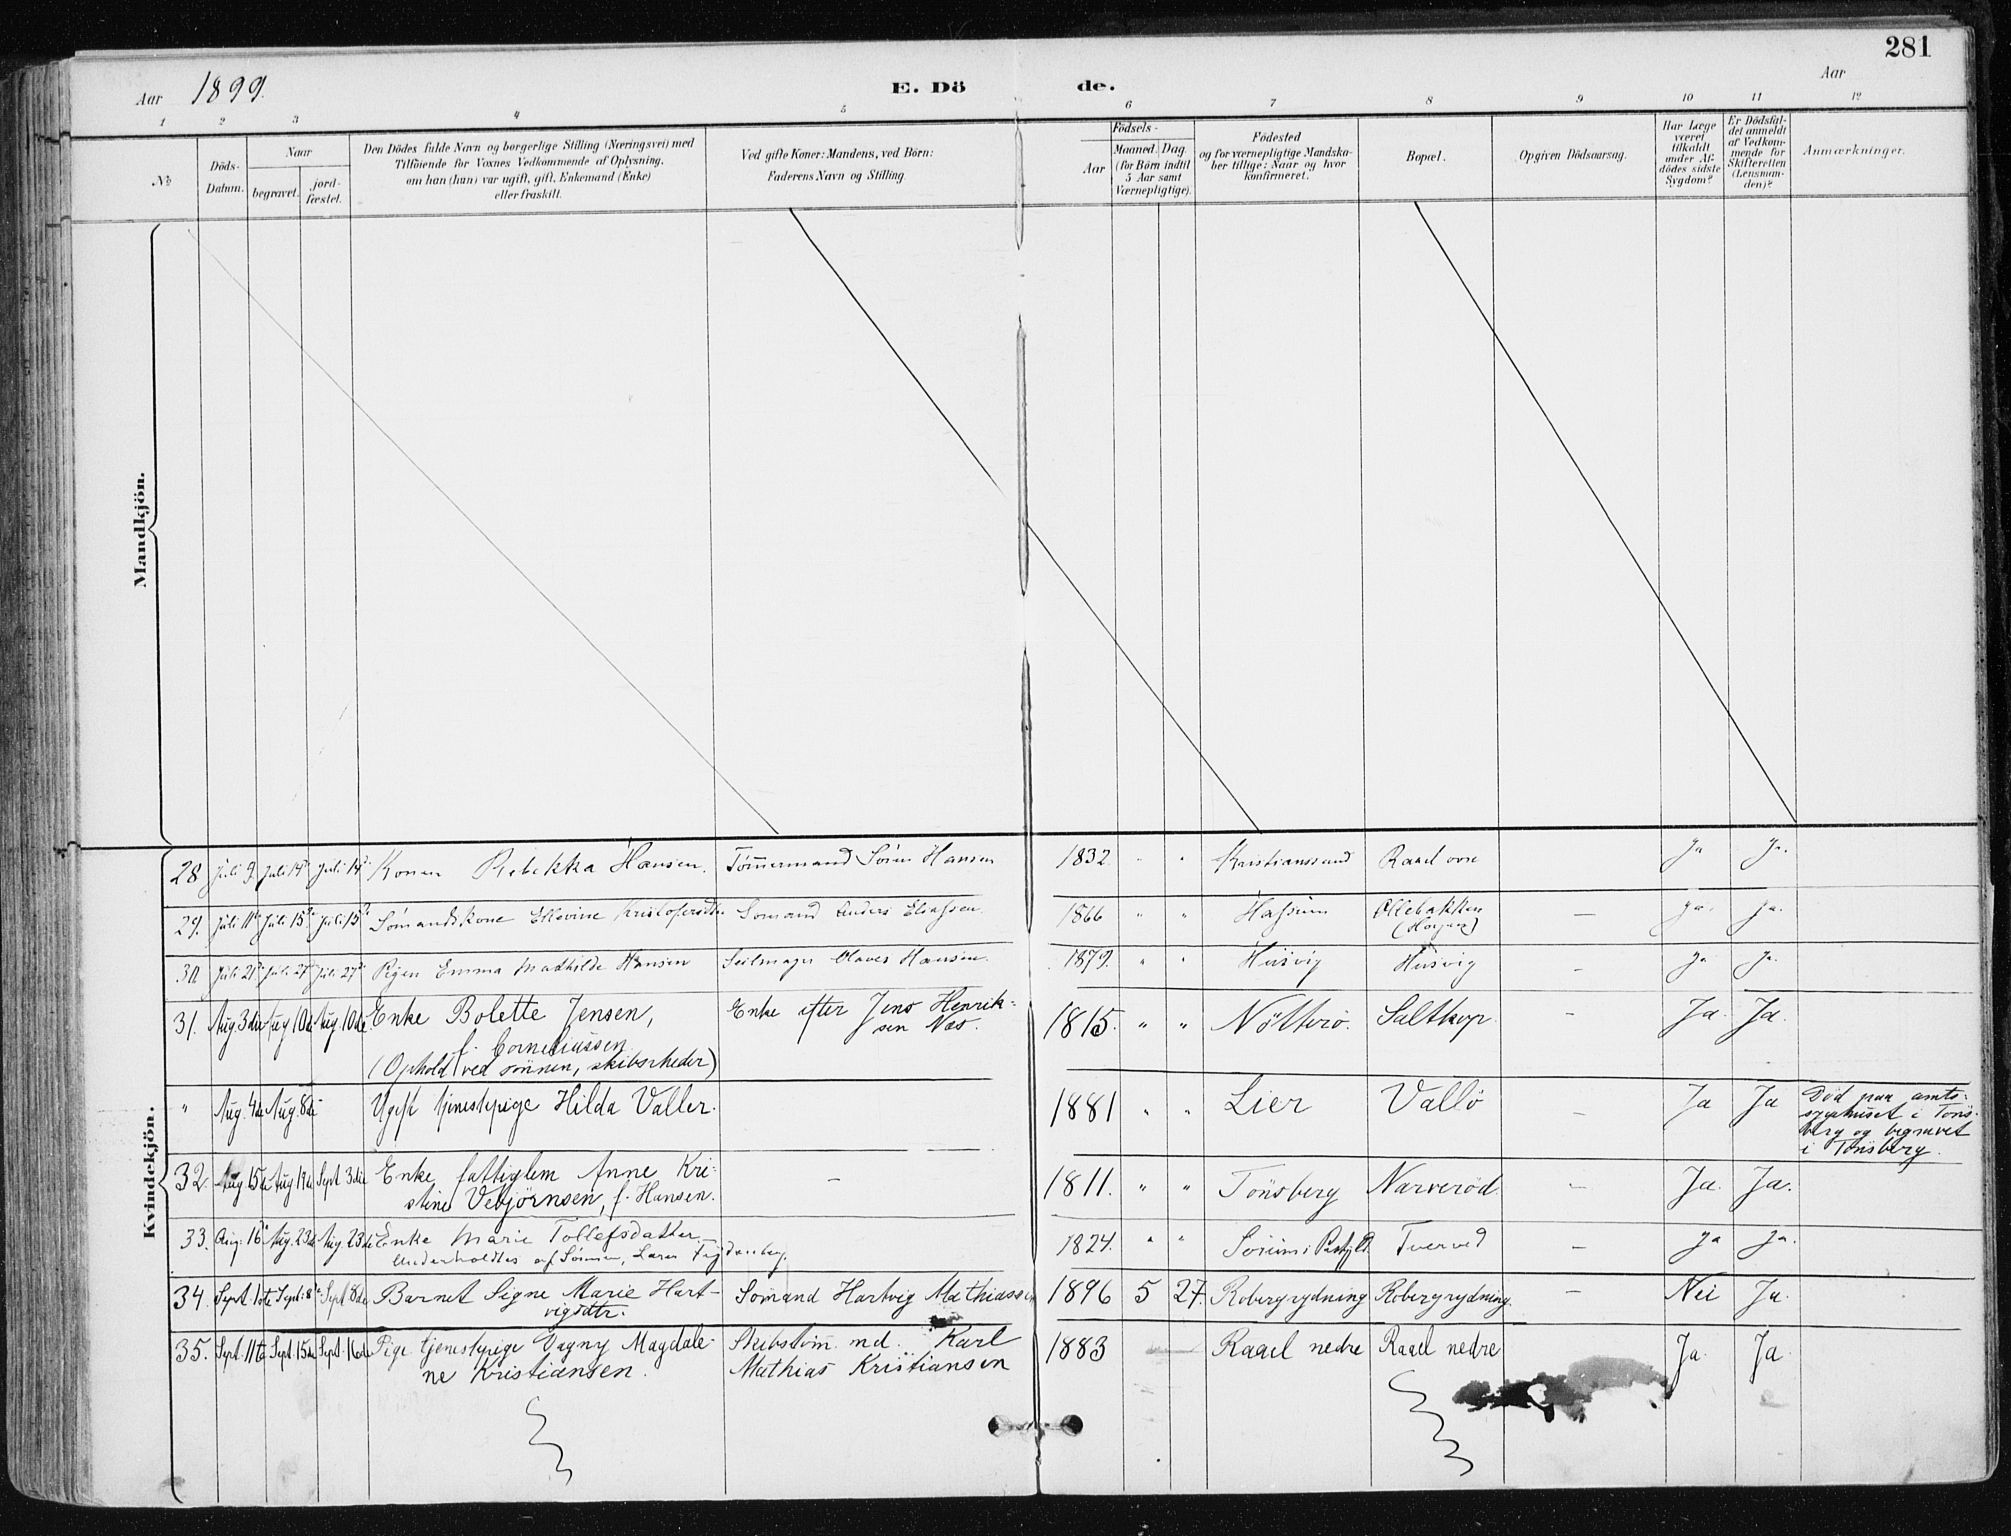 281
Aar 1899. E. Dö de. Aar
1 2 3 4 5 6 7 8 9 10 11 12
№
Döds-
Datum.
Naar
begravet.
jord-
fæstet.
Den Dödes fulde Navn og borgerlige Stilling (Næringsvei) med
Tilföiende for Voxnes Vedkommende af Oplysning,
om han (hun) var ugift, gift, Enkemand (Enke)
eller fraskilt.
Ved gifte Koner: Mandens, ved Börn:
Faderens Navn og Stilling.
Födsels-
Aar
Maaned. Dag.
(for Börn indtil
5 Aar samt
Værnepligtige).
Födested
og for værnepligtige Mandska-
ber tillige: Naar og hvor
konfirmeret.
Bopæl.
Opgiven Dödsaarsag.
Har Læge
været
tilkaldt
under Af-
dödes sidste
Sygdom?
Er Dödsfal-
det anmeldt
af Vedkom-
mende for
Skifteretten
(Lensman-
den)?
Anmærkninger.
Mandkjön.
Kvindekjön.
28 Juli 9. Juli 14de Juli 14de Konen Rebekka Hansen. Tømmermand Søren Hansen 1832 " " Kristianssund Raael øvre Ja Ja.
29. Juli 11te Juli 15de Juli 15de Sømandskone Kristofersdtr Sømand Anders Eliassen. 1866 " " Ollebakken — Ja. Ja.
30 Juli 21de Juli 27de Juli 27de Pigen Emma Mathilde Hansen Seilmager Olaves Hansen. 1879. " " Husvig Husvig — Ja Ja.
31. Aug. 3die Aug 10de Aug 10de Enke Bolette Jensen, Enke efter Jens Henrik- 1815. " " Nötterö. Saltkop. — Ja. Ja.
f. Corneliussen sen Næs.
(Ophold ved sönnen, skibsrheder)
" Aug. 4de Aug. 8de — Ugift tjenestepige Hilda Valler. 1881 " " Lier Vallö — Ja Ja Död paa amts-
sygehuset i Töns-
berg og begravet
i Tönsberg.
32. Aug. 15de Aug 19de Sept 3die Enke, fattiglem Anne Kri- — 1811. " " Tönsberg Narveröd. — Ja. Ja.
stine Vebjörnsen, f. Hansen.
33. Aug. 16de Aug. 23de Aug. 23de Enke Marie Tollefsdatter, 1824. " " Sörum i Tverved — Ja Ja.
Underholdtes af Sønnen,
34. Sept. 1ste Sept. 8de Sept. 8de Barnet Signe Marie Hart- Sömand Hartvig Mathiassen 1896 5 27. Robergrydning Robergrydning. — Nei Ja.
vigsdtr.
35. Sept. 11te Sept. 15de Sept. 16de Pige tjenestepige Vagny Magdale- Skibstöm. md. Karl 1883 Raael nedre Raael nedre Ja. Ja
ne Kristiansen. Mathias Kristiansen